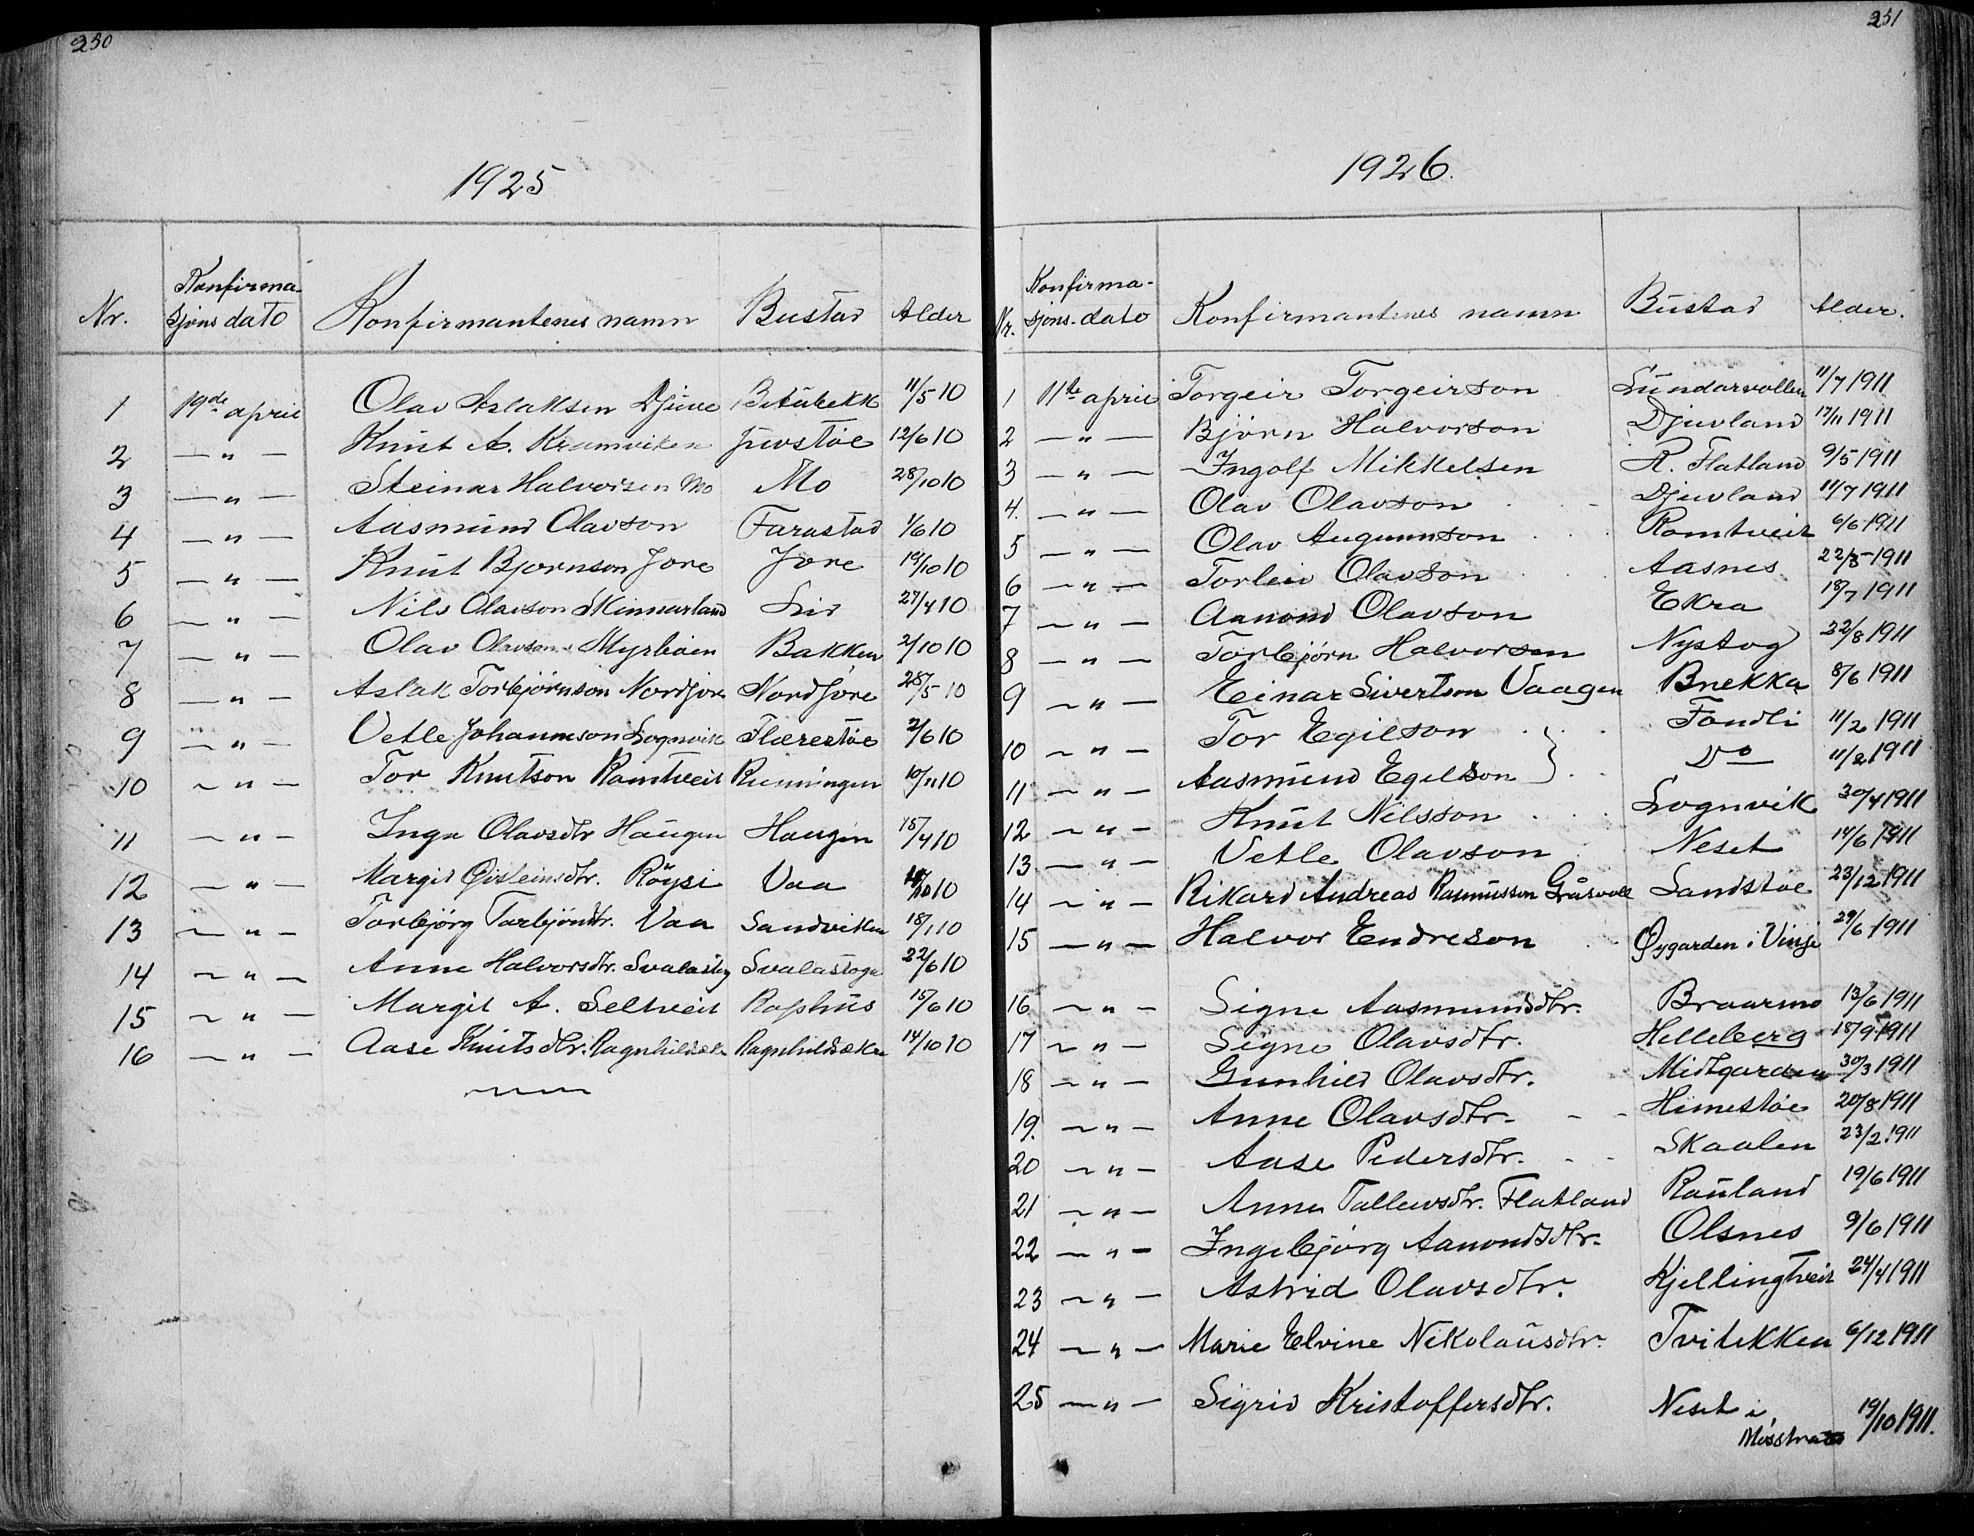 250
1925
Nr. Konfirma-sjons dato Konfirmantenes namn Bustad Alder
1 19de april Olav Aslaksen Djuve Bitubekk 11/5 10
2 — " — Knut A. Kromviken Juvstøe 12/6 10
3 — " — Steinar Halvorsen Mo Mo 28/10 10
4 — " — Aasmund Olavson Farastad 1/6 10
5 — " — Knut Bjornson Jore Jore 19/10 10
6 — " — Nils Olavson Skinnarland Lid 27/4 10
7 — " — Olav Olavson Myrbøen Bakken 2/10 10
8 — " — Aslak Torbjørnson Nordjore Nordjore 28/5 10
9 — " — Vetle Johannson Lognvik Flærestøe 2/6 10
10 — " — Tor Knutson Romtveit Runningen 10/11 10
11 — " — Inga Olavsdtr Haugen Haugen 15/4 10
12 — " — Margit Øisteinsdtr. Röysi Vaa 10
13 — " — Torbjörg Torbjöndtr. Vaa Sandviken 18/1 10
14 — " — Anne Halvorsdtr. Svalastog Svalastoga 22/6 10
15 — " — Margit A. Seltveit Raphus 15/6 10
16 — " — Aase Knutsdtr. Ragnhildsæk. Ragnhildsækre 14/10 10
251
1926.
Nr. Konfirma-sjons-dato Konfirmantenes namn Bustad Alder.
1 11te april Torgeir Torgeirson Sundarvollen 11/7 1911
2 — " — Bjørn Halvorson Djuvland 17/11 1911
3 — " — Ingolf Mikkelsen R. Flatland 9/5 1911
4. — " — Olav Olavson Djuvland 11/7 1911
5 — " — Olav Augunnson Romtveit 6/6 1911
6 — " — Torleiv Olavson Aasnes 22/3 1911
7 — " — Aanond Olavson Ekra 18/7 1911
8 — " — Torbjørn Halvorsen Nystog 22/8 1911
9 — " — Einar Sivertson Vaagen Brekka 8/6 1911
10 — " — Tor Egilson } Fondli 11/2 1911
11 — " — Aasmund Egilson } Do 11/2 1911
12 — " — Knut Nilsson Lognvik 30/4 1911
13 — " — Vetle Olavson Neset 14/6 1911
14 — " — Rikard Andreas Rasmusson Gråsvoll Sandstøe 23/12 1911
15 — " — Halvor Endreson Øygarden i Vinje 29/6 1911
16 — " — Signe Aasmundsdtr. Braarmo 13/6 1911
17 — " — Signe Olavsdtr. Helleberg 18/9 1911
18 — " — Gunhild Olavsdtr. Midtgarden 30/3 1911
19. — " — Anne Olavsdtr. Himestøe 20/8 1911
20 — " — Aase Pedersdtr. Skaalen 23/2 1911
21 — " — Anne Tallevsdtr. Flatland Rauland 19/6 1911
22 — " — Ingebjörg Aanondsdtr. Olsnes 9/6 1911
23 — " — Astrid Olavsdtr. Kjellingtveit 24/4 1911
24 — " — Marie Elvine Nikolausdtr. Tvitekken 6/12 1911
25 — " — Sigrid Kristoffersdtr. Neset i Møsstrand 19/10 1911.